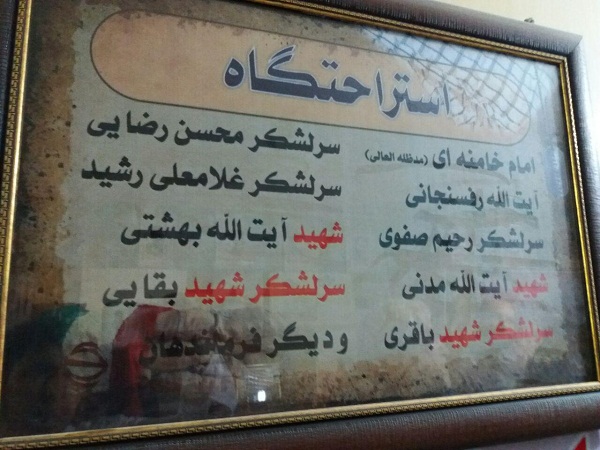 استراحتگاه
امام خامنه ای (مدظله العالی)
آیت الله رفسنجانی
سرلشکر رحیم صفوی
شهید آیت الله مدنی
سرلشکر شهید باقری
سرلشکر محسن رضایی
سرلشکر غلامعلی رشید
شهید آیت الله بهشتی
سرلشکر شهید بقایی
و دیگر فرماندهان